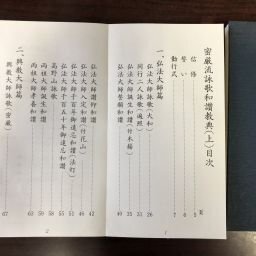 密厳流詠歌和讃教典(上)目次
頁
信條 5
誓い 6
勤行式 7
一、弘法大師篇
弘法大師詠歌(大和) 26
同行二人詠歌(遍照) 31
弘法大師誕生和讃(竹木楊) 33
弘法大師誓願和讃 40
弘法大師讃仰和讃 42
弘法大師入定和讃(付花山) 46
弘法大師千百五十年御遠忌和讃(法灯) 51
弘法大師千百五十年御遠忌和讃 55
高野山詠歌 58
両祖大師誕生和讃 59
両祖大師孝養和讃 63
二、興教大師篇
興教大師詠歌(密厳) 67
1
2